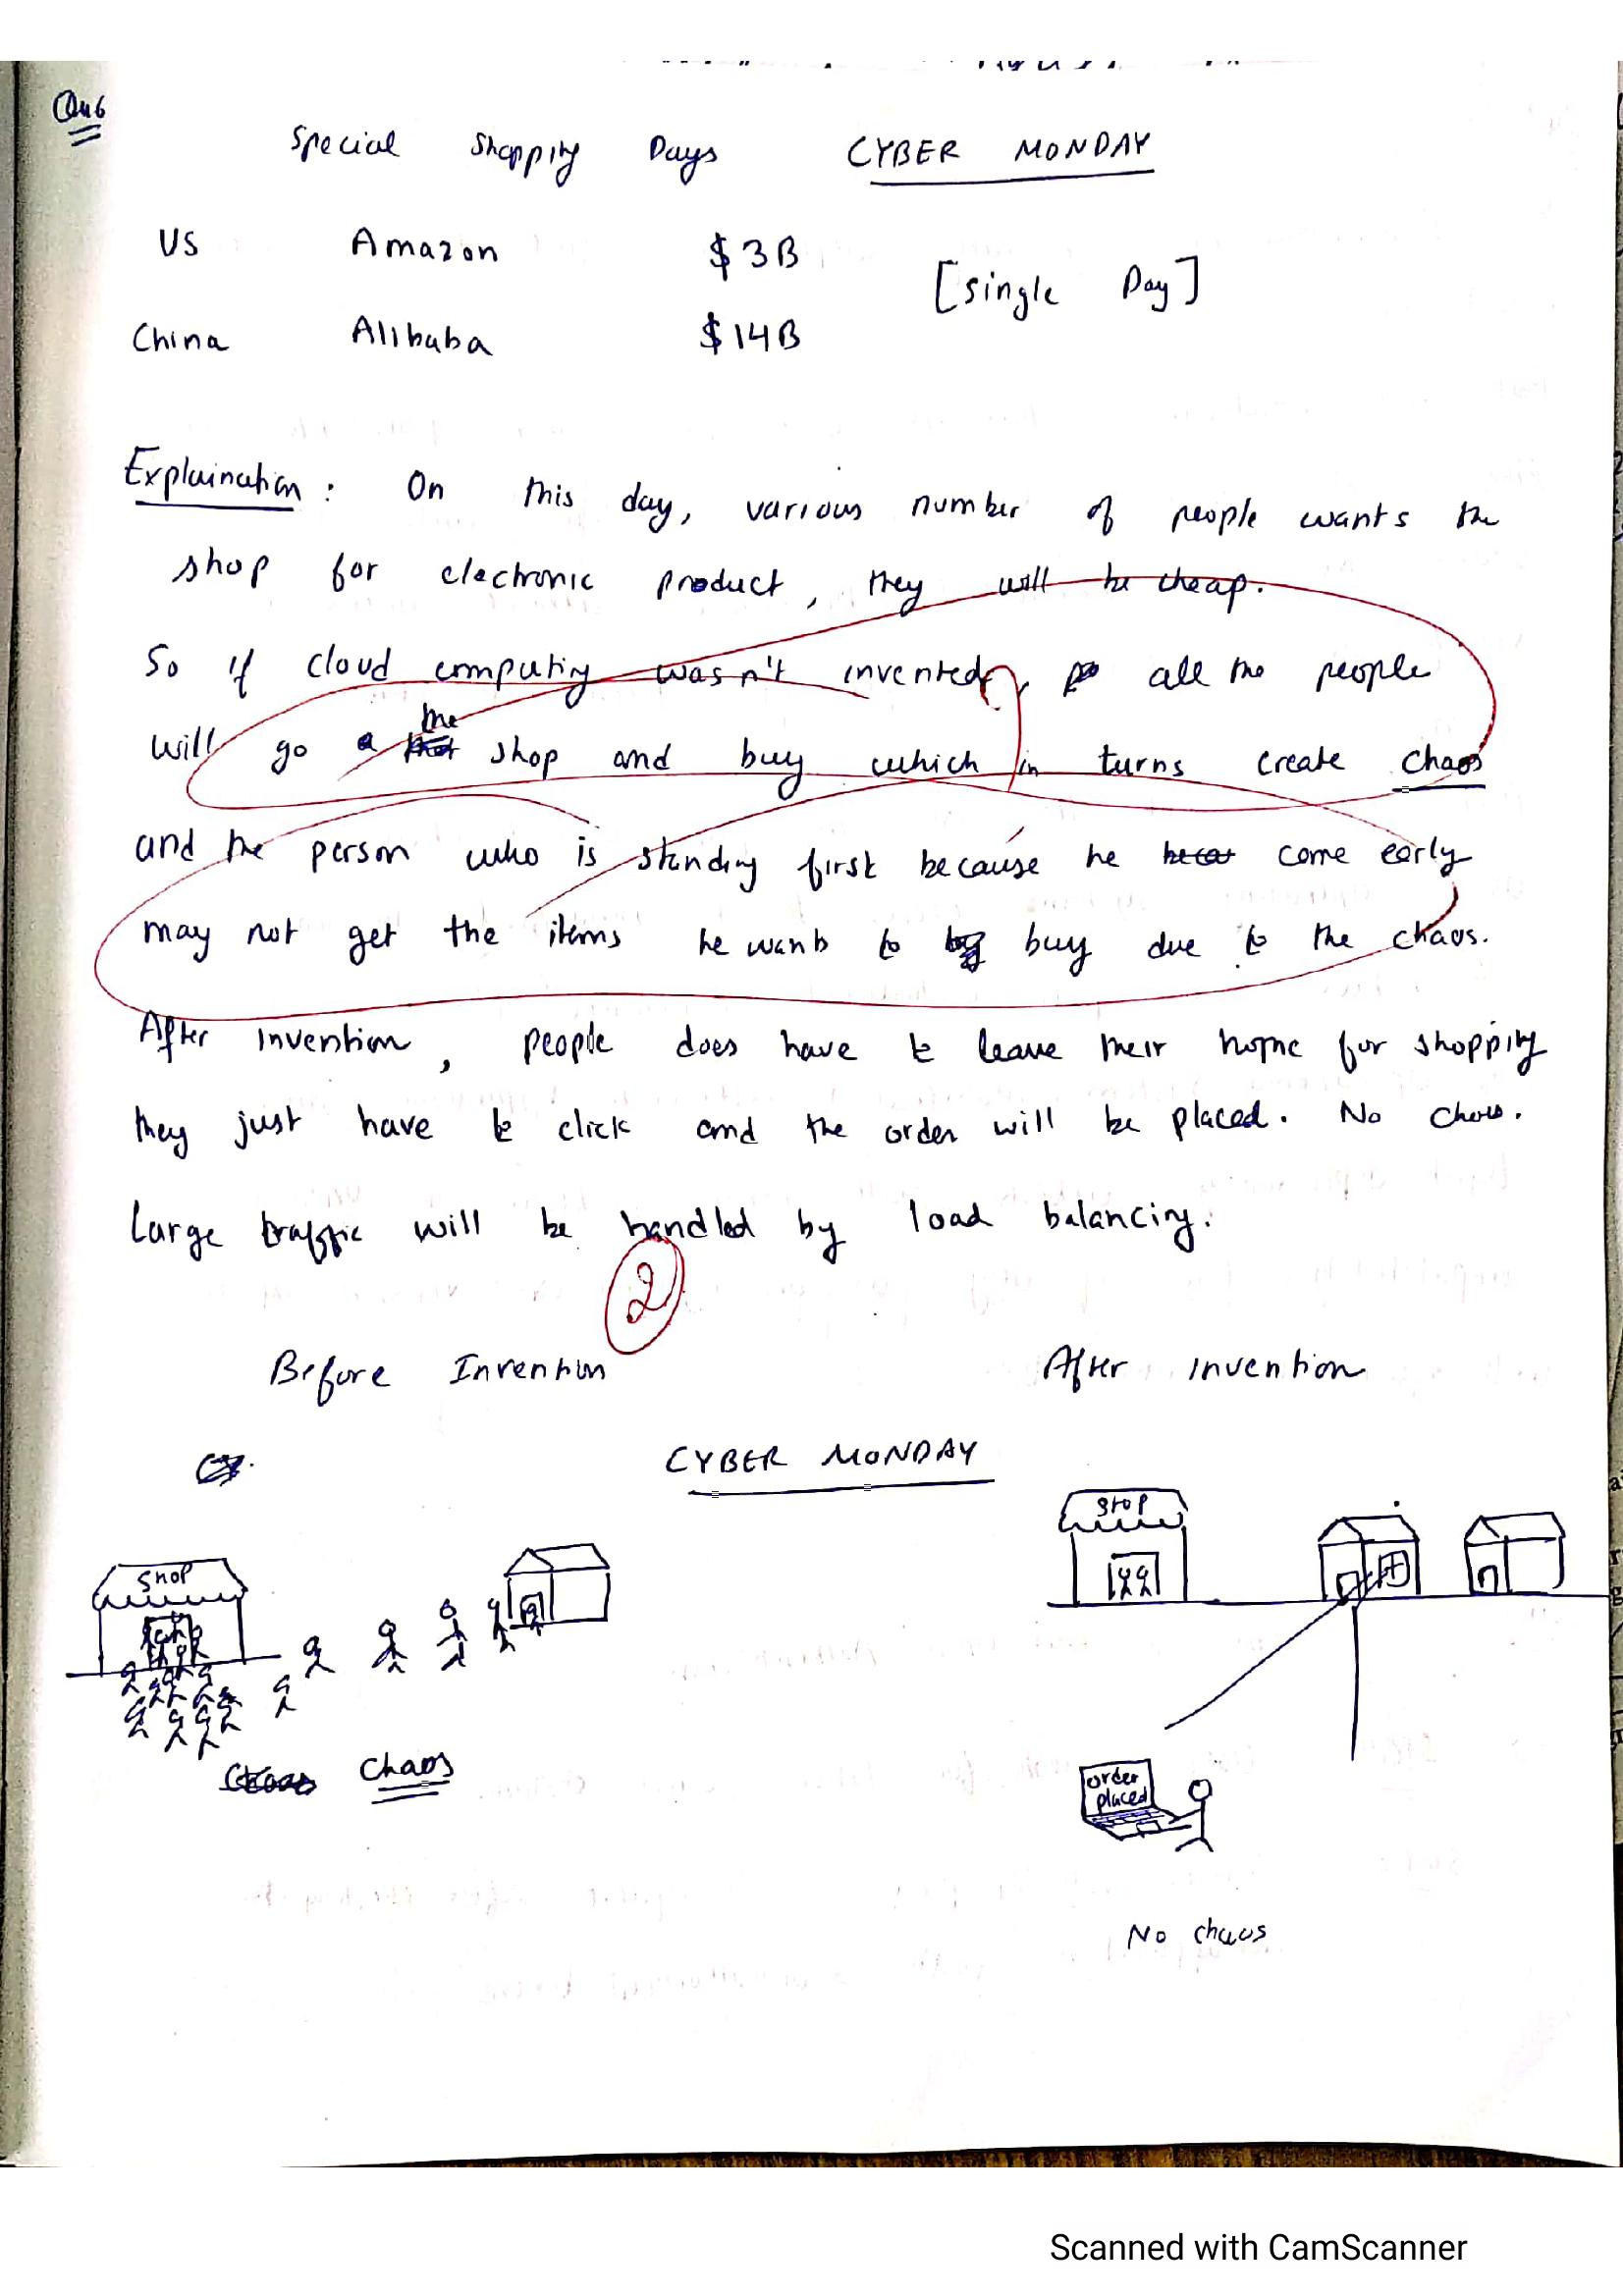 Qu6
Special Shopping Days CYBER MONDAY
US Amazon $3B
[Single Day]
China Alibaba $14B
Explaination : On this day, various number of people wants the
shop for electronic product, they will be cheap.
So if cloud computing wasn't invented, all the people
will go the shop and buy which in turns create chaos
and the person who is standing first because he come early
may not get the items he wants to buy due to the chaos.
After invention, people does have to leave their home for shopping
they just have to click and the order will be placed. No chaos.
Large traffic will be handled by load balancing.
2
Before Invention After invention
CYBER MONDAY
Shop
Shop
Chaos
order
placed
No chaos
Scanned with CamScanner